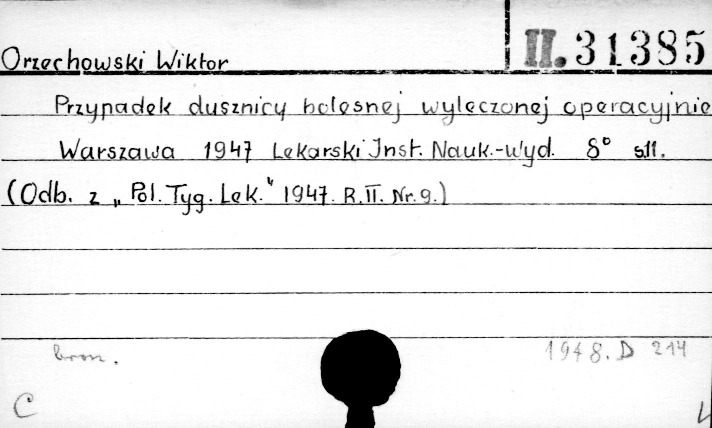 II. 31385
Orzechowski Wiktor
Przypadek dusznicy bolesnej wyleczonej operacyjnie
Warszawa 1947 Lekarski Inst. Nauk.-Wyd. 8° s.11.
(Odb. z „Pol. Tyg. Lek." 1947. R.II. Nr.9.)
bron. 1948. D 214
C